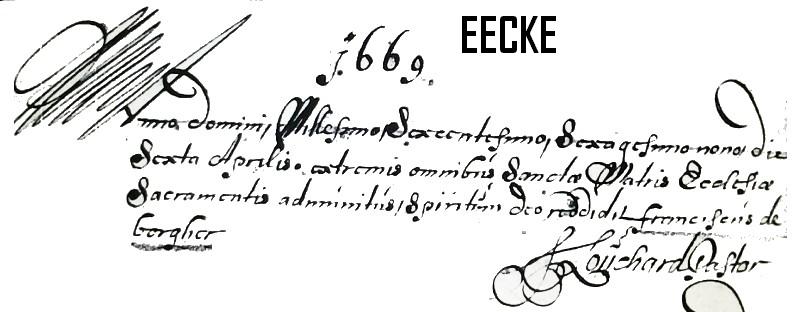 EECKE
1669.
Anno domini, Millesimo, Sexcentesimo, Sexagesimo nono, die
Sexta Aprilis. extremis omnibús Sanctæ Matris Ecclesiæ
Sacramentis adminitús, Spiritúm deo reddidit franciscús de
bergher
Pastor